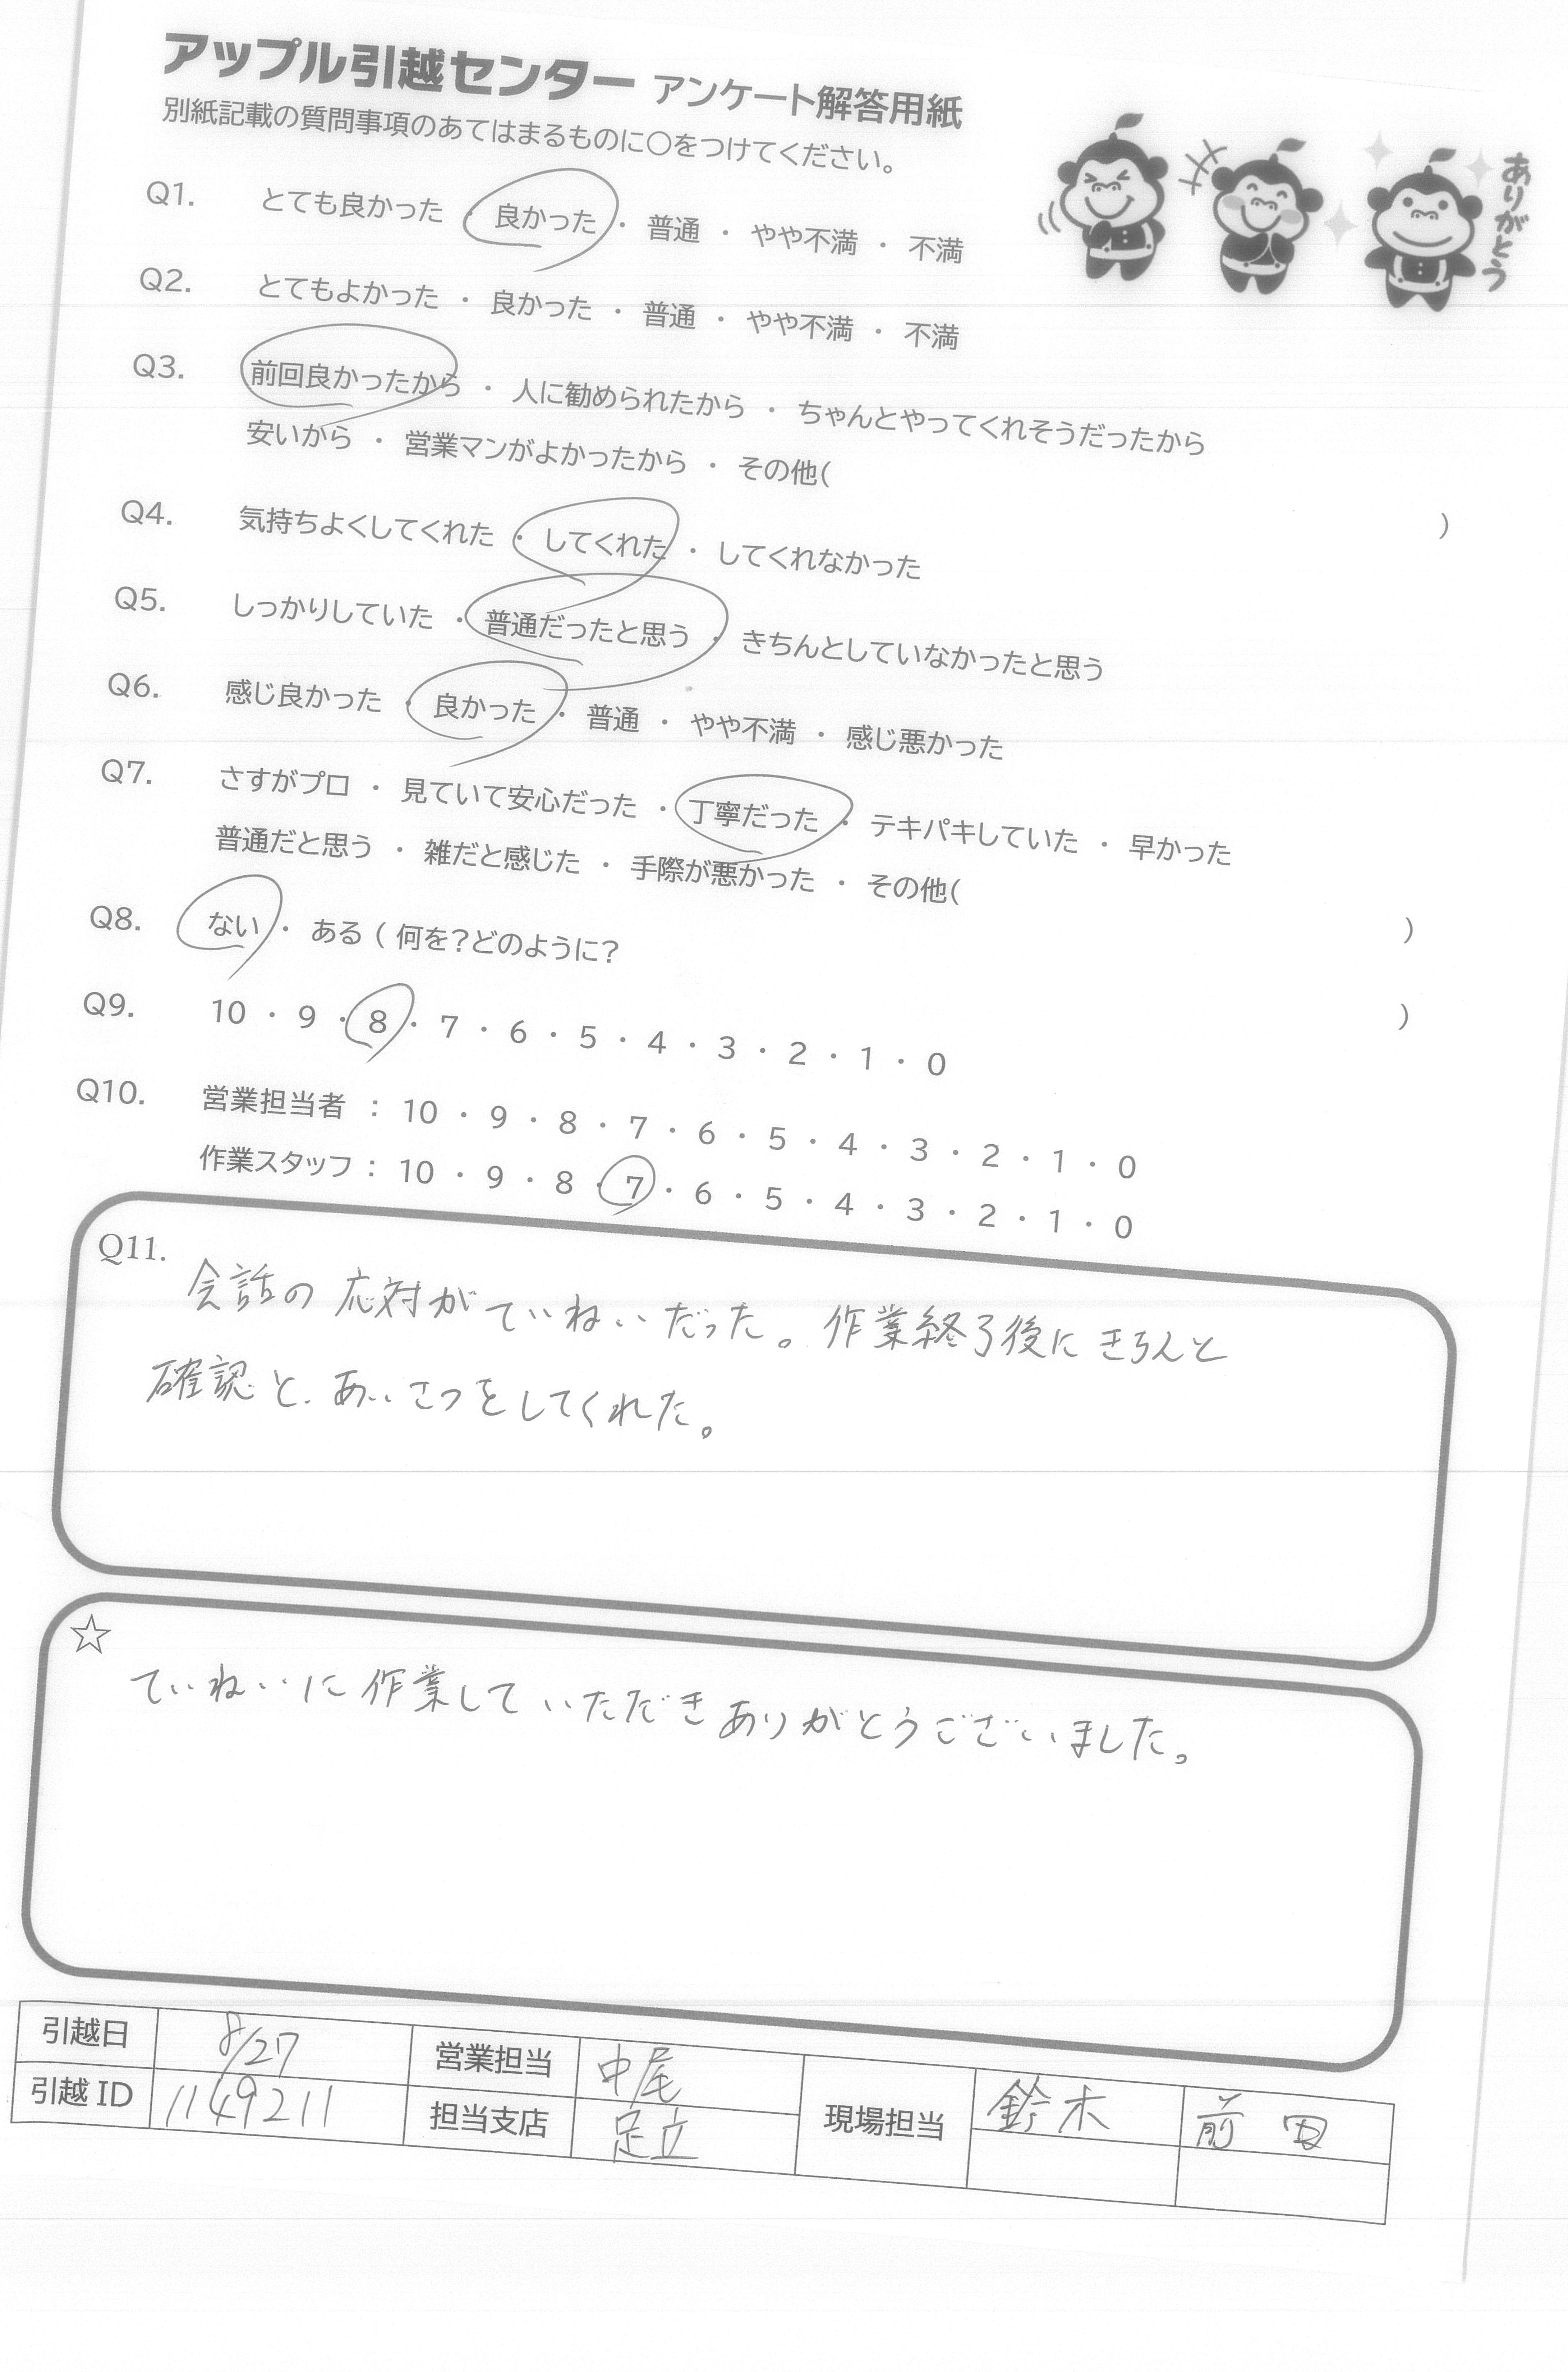 アップル引越センター アンケート解答用紙
別紙記載の質問事項のあてはまるものに○をつけてください。
ありがとう
Q1. とても良かった ・ 良かった ・ 普通 ・ やや不満 ・ 不満
Q2. とてもよかった ・ 良かった ・ 普通 ・ やや不満 ・ 不満
Q3. 前回良かったから ・ 人に勧められたから ・ ちゃんとやってくれそうだったから
安いから ・ 営業マンがよかったから ・ その他( )
Q4. 気持ちよくしてくれた ・ してくれた ・ してくれなかった
Q5. しっかりしていた ・ 普通だったと思う ・ きちんとしていなかったと思う
Q6. 感じ良かった ・ 良かった ・ 普通 ・ やや不満 ・ 感じ悪かった
Q7. さすがプロ ・ 見ていて安心だった ・ 丁寧だった ・ テキパキしていた ・ 早かった
普通だと思う ・ 雑だと感じた ・ 手際が悪かった ・ その他( )
Q8. ない ・ ある ( 何を?どのように? )
Q9. 10 ・ 9 ・ 8 ・ 7 ・ 6 ・ 5 ・ 4 ・ 3 ・ 2 ・ 1 ・ 0
Q10. 営業担当者 : 10 ・ 9 ・ 8 ・ 7 ・ 6 ・ 5 ・ 4 ・ 3 ・ 2 ・ 1 ・ 0
作業スタッフ : 10 ・ 9 ・ 8 ・ 7 ・ 6 ・ 5 ・ 4 ・ 3 ・ 2 ・ 1 ・ 0
Q11. 会話の応対がていねいだった。作業終了後にきちんと
確認と、あいさつをしてくれた。
☆
ていねいに作業していただきありがとうございました。
引越日 8/27 営業担当 中尾 現場担当 鈴木 前田
引越ID 1149211 担当支店 足立